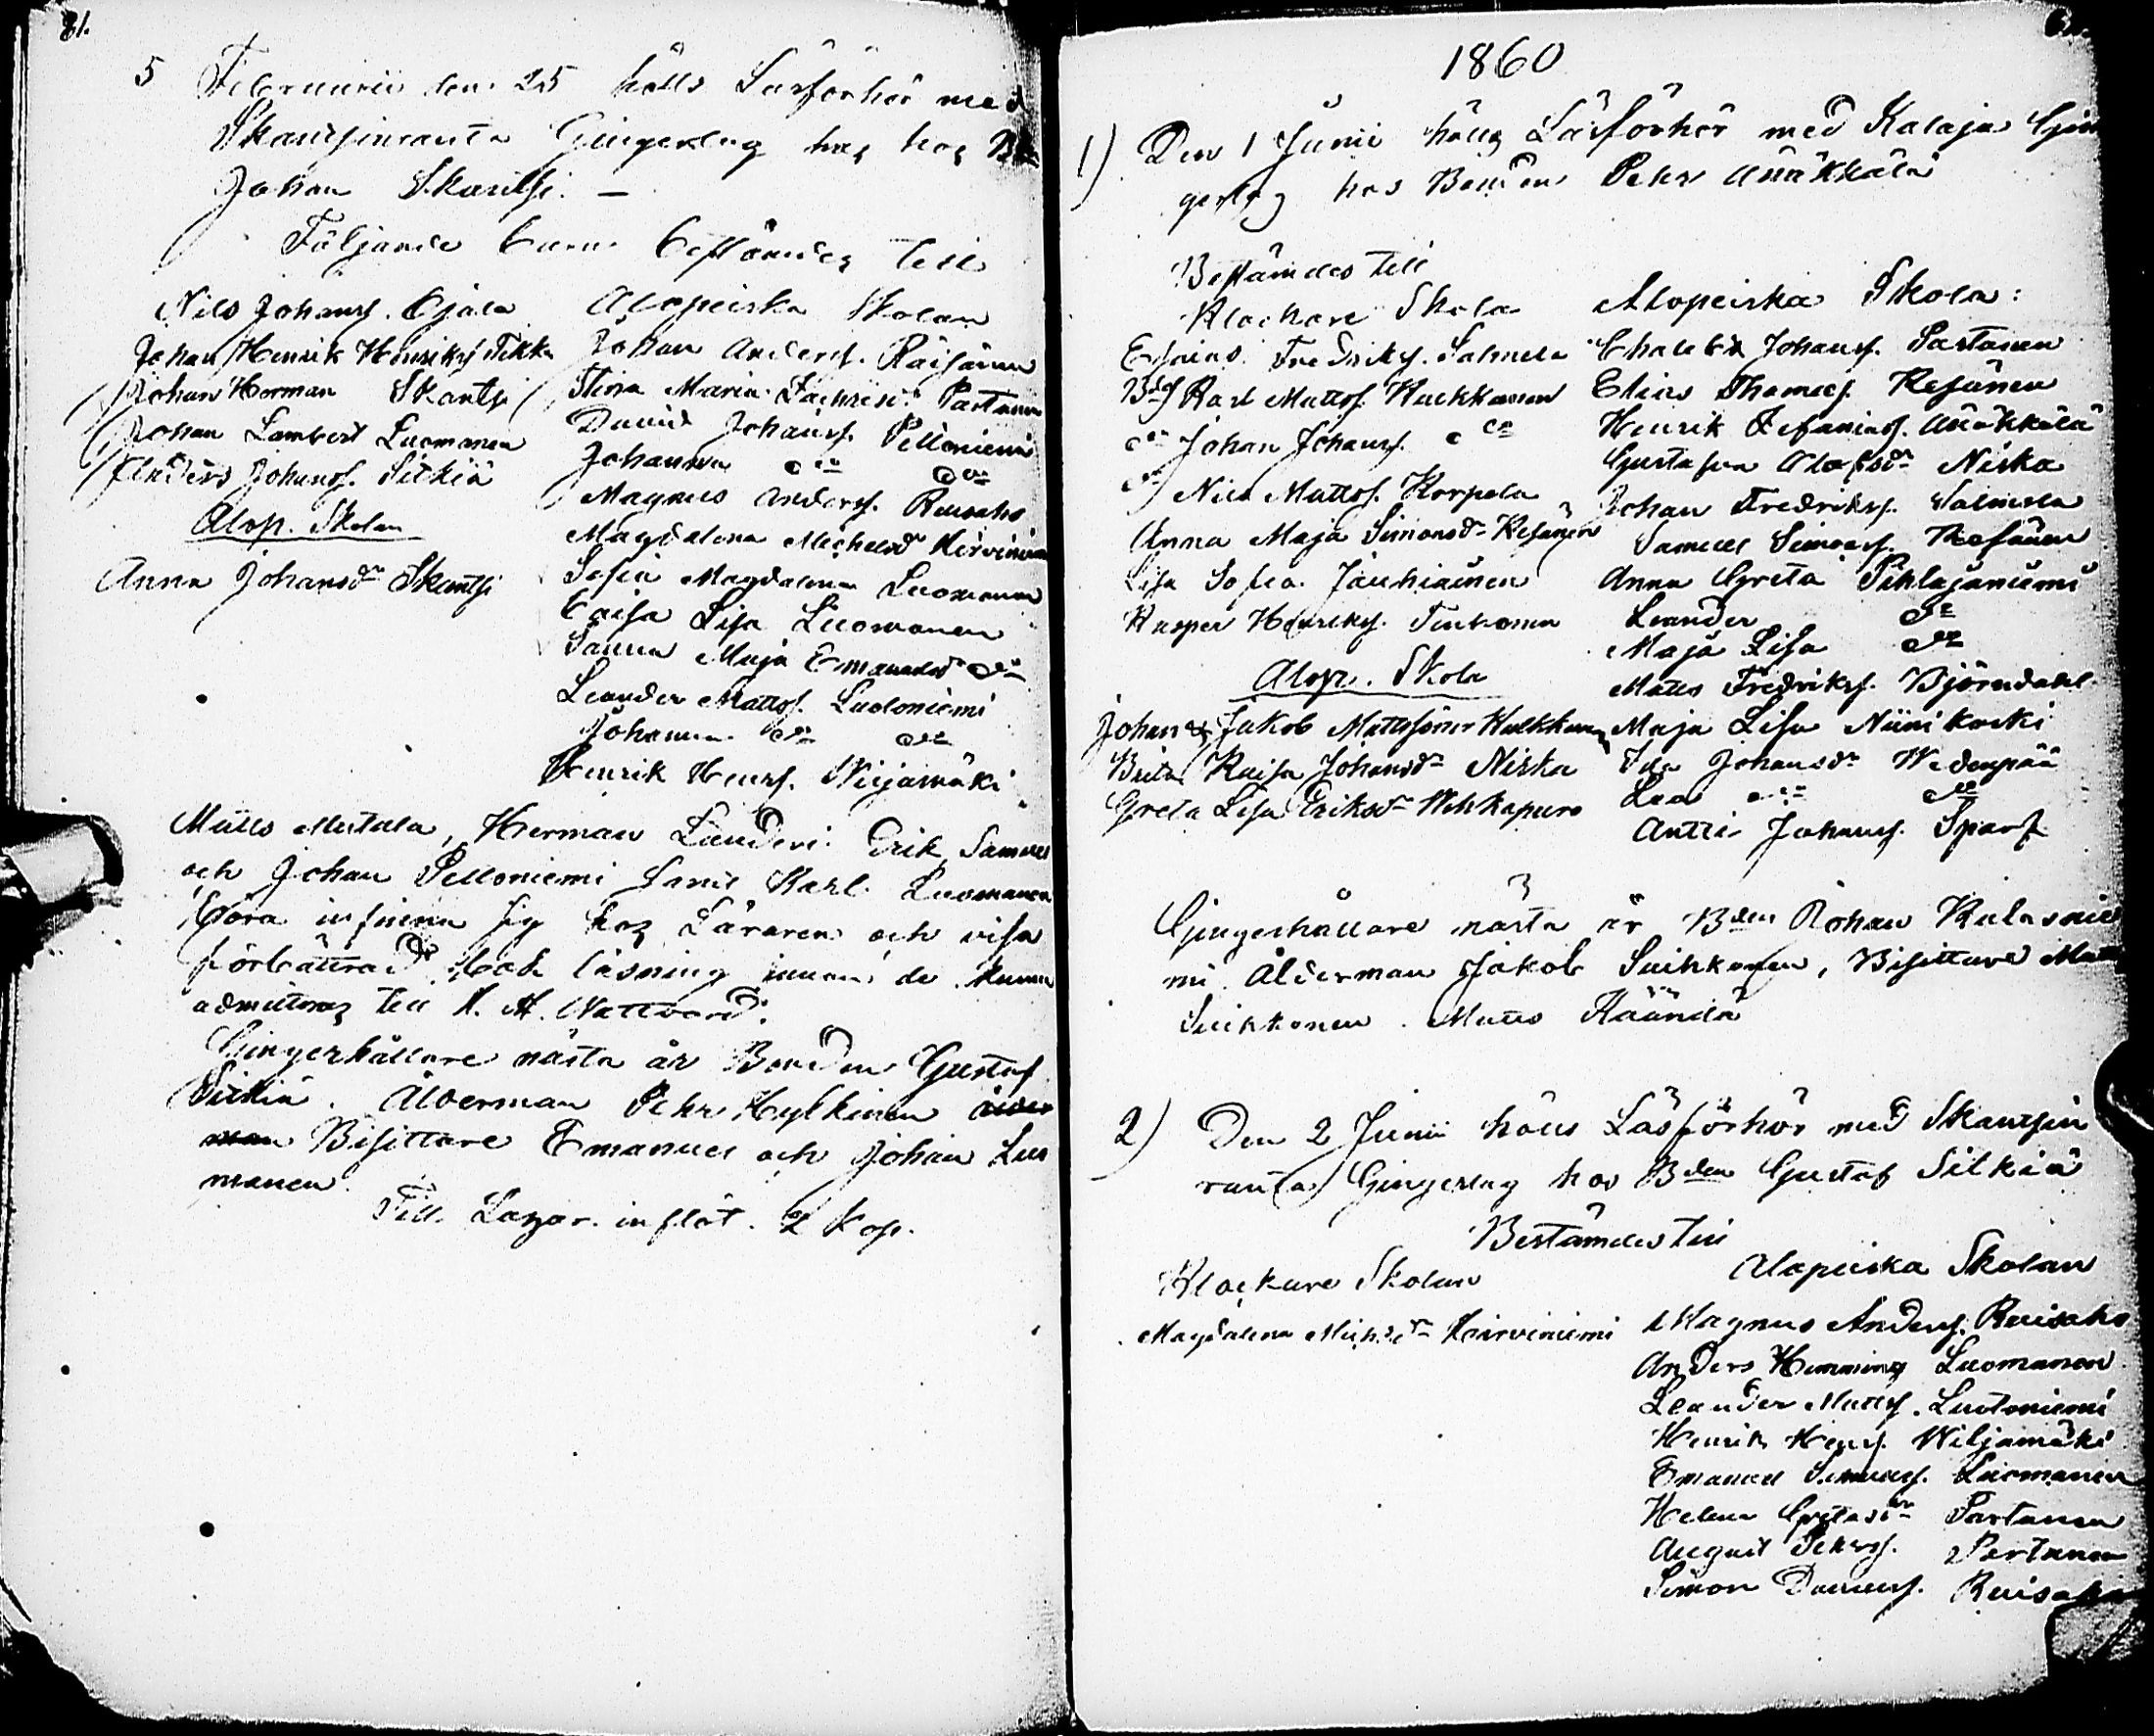 81.
5 Februarii den 25 hölls Läsförhör med
Skantsinranta Gingerlag hos
Johan Skantsi. —
Följande barn bestämdes till
Nils Johansf. Ojala
Johan Henrik Henriksf. Tikka
Johan Herman Skantsi
Johan Lambert Luomanen
Anders Johansf. Sitkiä
Alop. Skolan
Anna Johansdr Skantsi
Alopeiska Skolan
Johan Andersf. Räisänen
Stina Maria Partanen
David Johansf. Pelloniemi
Johanna do do
Magnus Andersf. Ruisaho
Magdalena Michelsdr Hirviniemi
Sofia Magdalena Luomanen
Caisa Lisa Luomanen
Sanna Maja Emanuelsdr do
Leander Mattsf. Luotoniemi
Johanna do do
Henrik Henrsf. Wiljamäki
Matts Mutala, Herman Landeri Erik Samuel
och Johan Pelloniemi samt Karl Luomanen
böra infinna sig hos Läraren och visa
förbättrad bok läsning innan de kunna
admitteras till H. H. Nattvard.
Gingerhållare nästa år Bonden Gustaf
Sitkiä. Ålderman Pehr Hylkinen ålder
man Bisittare Emanuel och Johan Luo
manen.
Till Lazar. inflöt. 2 Kop.
1860
1) Den 1 Junii hölls Läsförhör med Kalaja Gin
gerlag hos Bonden Pehr Anäkkälä
Bestämdes till
Klockare Skola
Esaias Fredriksf. Salmela
Karl Mattsf. Kukkonen
do Johan Johansf. do
do Nils Mattsf. Korpela
Anna Maja Simonsdr Kesänen
Lisa Sofia Jauhiainen
Kasper Henriksf. Tenhonen
Alop. Skola
Johan & Jakob Mattssöner Kukkonen
Brita Kaisa Johansdr Niska
Greta Lisa Eriksdr Wehkapuro
Alopeiska Skola:
Johansf. Partanen
Elias Thomasf. Kesänen
Henrik Zefaniasf. Anäkkälä
Gustafva Olofsdr Niska
Johan Fredriksf. Salmela
Samuel Simonsf. Kesänen
Anna Greta Pihlajaniemi
Leander do
Maja Lisa do
Matts Fredriksf. Björndahl
Maja Lisa Niinikoski
Ida Johansdr Wedenpää
Lea do do
Antti Johansf. Sparf
Gingerhållare nästa år Bden Johan Kulasnie
mi. Ålderman Jakob Suihkonen, Bisittare
Suihkonen. Matts Käändä
2) Den 2 Junii hölls Läsförhör med Skantsin
ranta Gingerlag hos Bden Gustaf Sitkiä
Bestämdes till
Klockare Skolan
Magdalena Michelsdr Hirviniemi
Alopeiska Skolan
Magnus Andersf. Ruisaho
Anders Hemming Luomanen
Leander Mattsf. Luotoniemi
Henrik Henrsf. Wiljamäki
Emanuel Samuelsf. Luomanen
Helena Partanen
August Pehrsf. Partanen
Simon Ruisaho